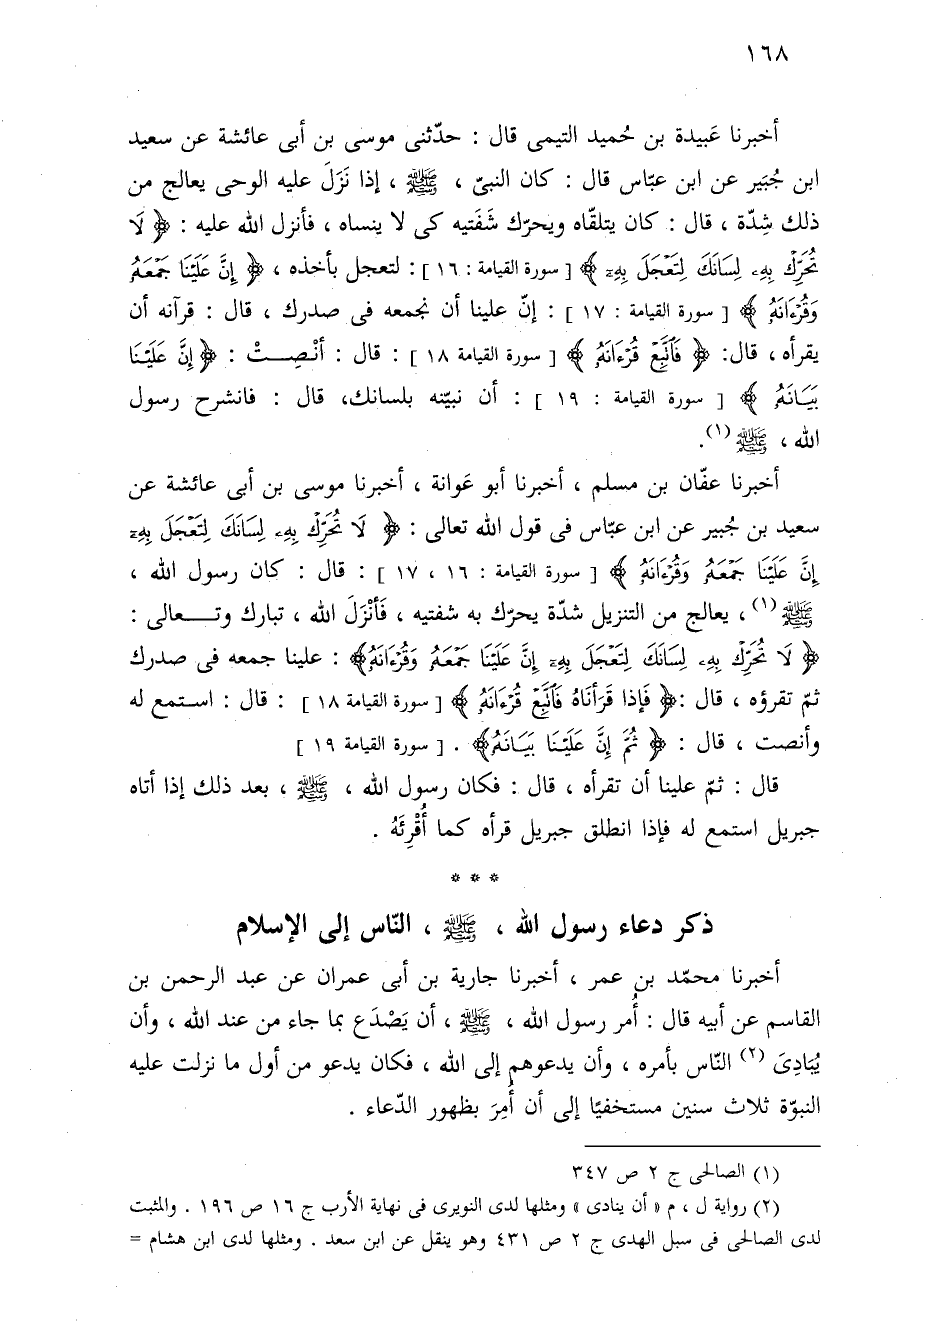 ١٦٨
أخبرنا عَبيدة بن حُميد التيمى قال : حدّثنى موسى بن أبى عائشة عن سعيد
ابن جُبَير عن ابن عبّاس قال : كان النبىّ ، ﷺ ، إذا نَزَلَ عليه الوحى يعالج من
ذلك شِدّة ، قال : كان يتلقّاه ويحرّك شَفَتيه كى لا ينساه ، فأنزل الله عليه : ﴿ لَا
تُحَرِّكْ بِهِۦ لِسَانَكَ لِتَعْجَلَ بِهِۦٓ ﴾ [ سورة القيامة : ١٦ ] : لتعجل بأخذه ، ﴿ إِنَّ عَلَيْنَا جَمْعَهُۥ
وَقُرْءَانَهُۥ ﴾ [ سورة القيامة : ١٧ ] : إنّ علينا أن نجمعه فى صدرك ، قال : قرآنه أن
يقرأه ، قال: ﴿ فَٱتَّبِعْ قُرْءَانَهُۥ ﴾ [ سورة القيامة ١٨ ] : قال : أنْصِـــتْ : ﴿ إِنَّ عَلَيْنَا
بَيَانَهُۥ ﴾ [ سورة القيامة : ١٩ ] : أن نبيّنه بلسانك، قال : فانشرح رسول
الله ، ﷺ (١).
أخبرنا عفّان بن مسلم ، أخبرنا أبو عَوانة ، أخبرنا موسى بن أبى عائشة عن
سعيد بن جُبير عن ابن عبّاس فى قول الله تعالى : ﴿ لَا تُحَرِّكْ بِهِۦ لِسَانَكَ لِتَعْجَلَ بِهِۦٓ
إِنَّ عَلَيْنَا جَمْعَهُۥ وَقُرْءَانَهُۥ ﴾ [ سورة القيامة : ١٦ ، ١٧ ] : قال : كان رسول الله ،
ﷺ (١)، يعالج من التنزيل شدّة يحرّك به شفتيه ، فَأنْزَلَ الله ، تبارك وتـــعالى :
﴿ لَا تُحَرِّكْ بِهِۦ لِسَانَكَ لِتَعْجَلَ بِهِۦٓ إِنَّ عَلَيْنَا جَمْعَهُۥ وَقُرْءَانَهُۥ﴾ : علينا جمعه فى صدرك
ثمّ تقرؤه ، قال :﴿ فَإِذَا قَرَأْنَاهُ فَٱتَّبِعْ قُرْءَانَهُۥ ﴾ [ سورة القيامة ١٨ ] : قال : استمع له
وأنصت ، قال : ﴿ ثُمَّ إِنَّ عَلَيْنَا بَيَانَهُۥ﴾ . [ سورة القيامة ١٩ ]
قال : ثمّ علينا أن تقرأه ، قال : فكان رسول الله ، ﷺ ، بعد ذلك إذا أتاه
جبريل استمع له فإذا انطلق جبريل قرأه كما أُقْرِئَهُ .
* * *
ذكر دعاء رسول الله ، ﷺ ، النّاس إلى الإسلام
أخبرنا محمّد بن عمر ، أخبرنا جارية بن أبى عمران عن عبد الرحمن بن
القاسم عن أبيه قال : أُمر رسول الله ، ﷺ ، أن يَصْدَع بما جاء من عند الله ، وأن
يُبَادِىَ (٢) النّاس بأمره ، وأن يدعوهم إلى الله ، فكان يدعو من أول ما نزلت عليه
النبوّة ثلاث سنين مستخفيًا إلى أن أُمِرَ بظهور الدّعاء .
(١) الصالحى ج ٢ ص ٣٤٧
(٢) رواية ل ، م « أن ينادى » ومثلها لدى النويرى فى نهاية الأرب ج ١٦ ص ١٩٦ . والمثبت
لدى الصالحى فى سبل الهدى ج ٢ ص ٤٣١ وهو ينقل عن ابن سعد . ومثلها لدى ابن هشام =